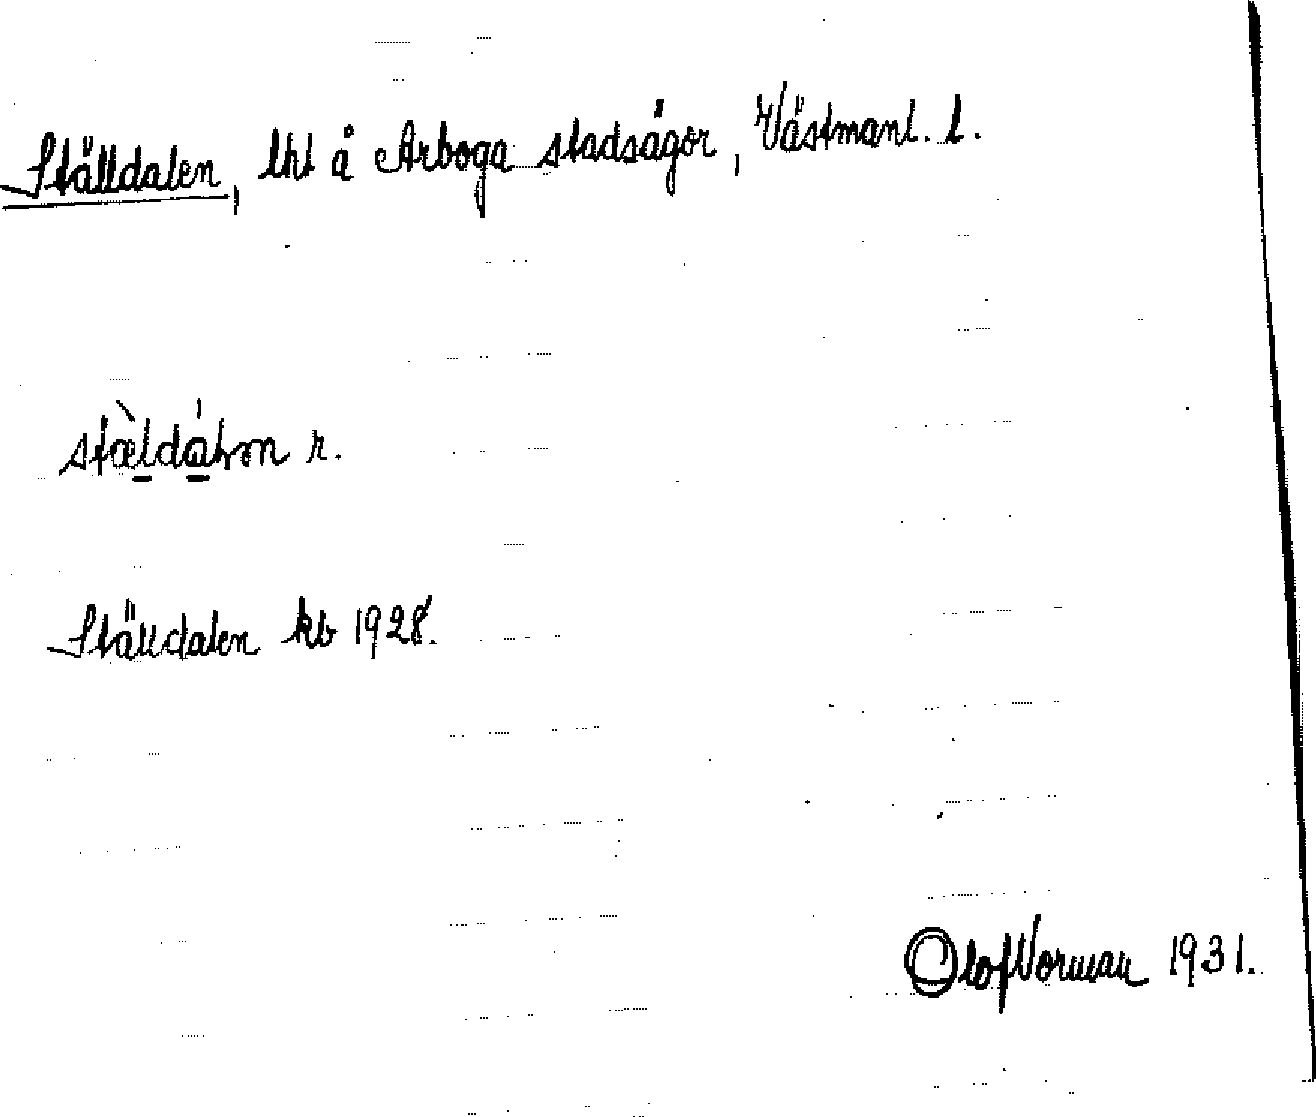 Ställdalen, lht å Arboga stadsägor, Västmanl. l.
r.
Ställdalen kb 1928.
Olof Norman 1931.